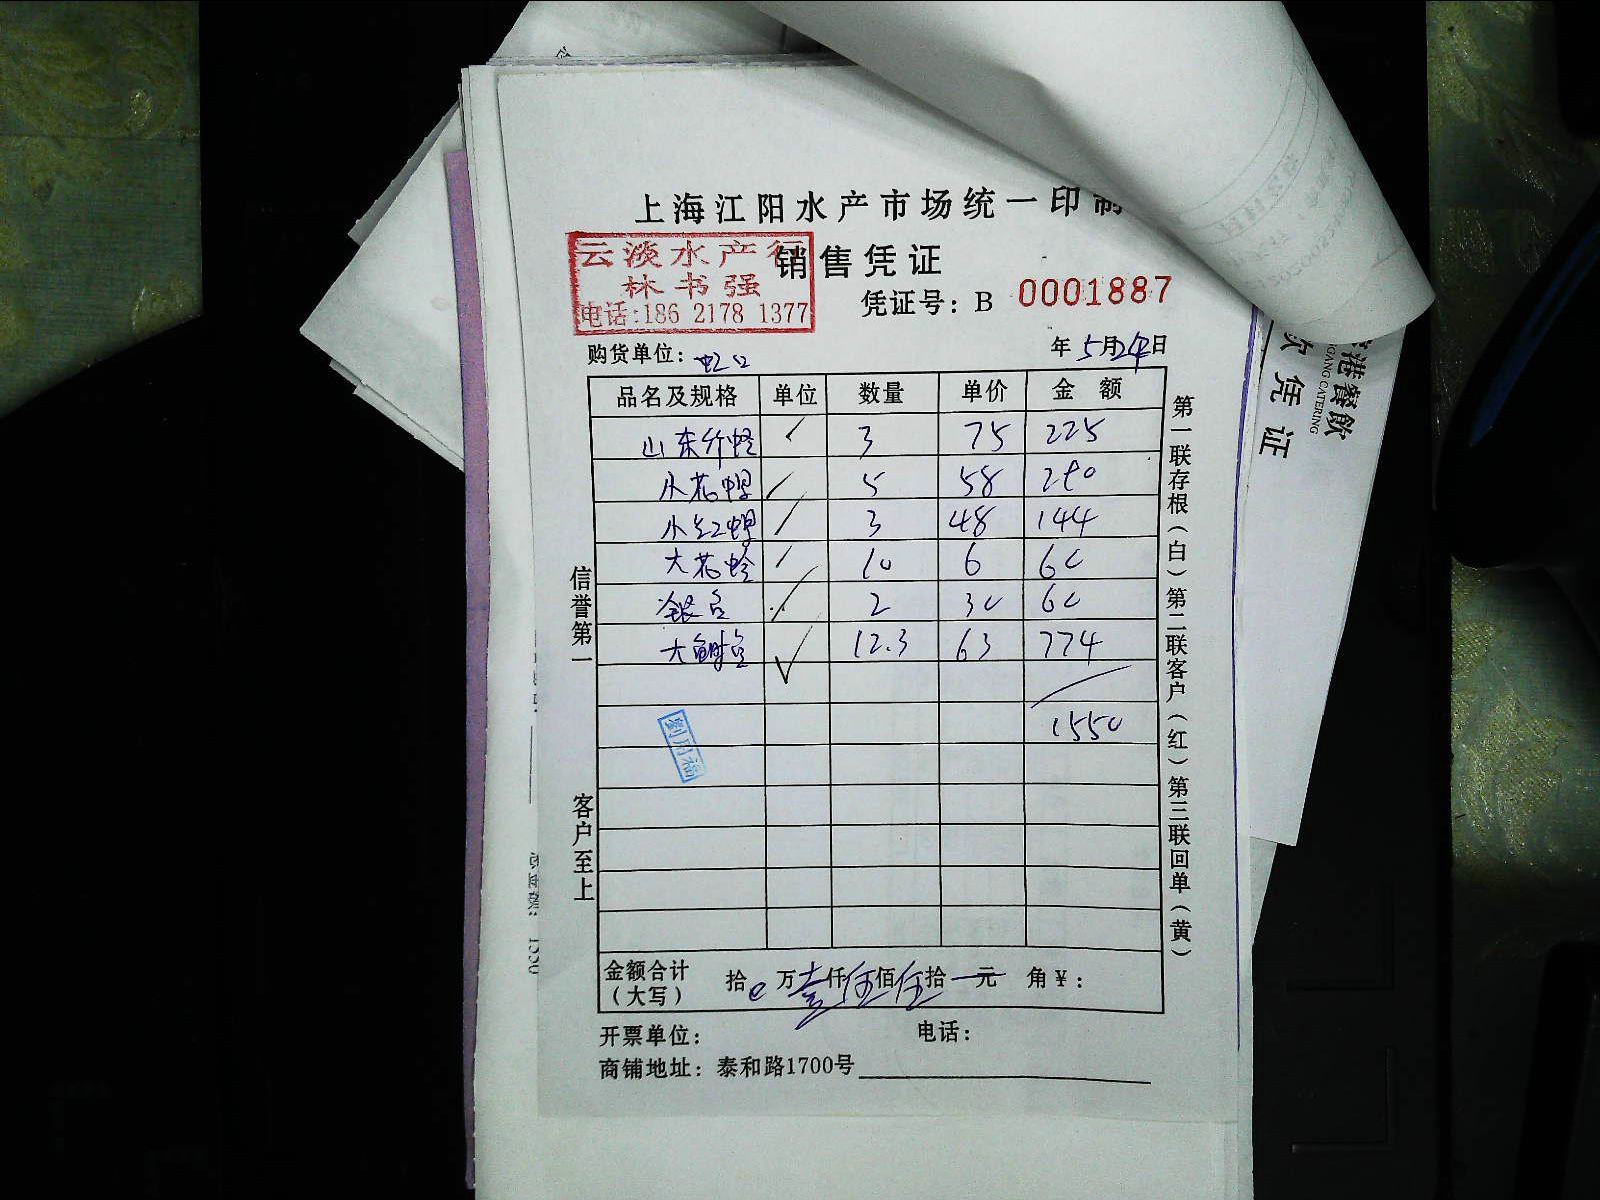 上海江阳水产市场统一印制
销售凭证
云淡水产行
林书强
电话:186 2178 1377
凭证号: B 0001887
购货单位: 虹口
年 5月24日
品名及规格 单位 数量 单价 金额
山东竹蛏 3 75 225
小花螺 5 58 290
小红螺 3 48 144
大花蛤 10 6 60
银鱼 2 30 60
大鲥鱼 12.3 63 774
1550
信誉第一
客户至上
第一联存根(白) 第二联客户(红) 第三联回单(黄)
金额合计 拾 万壹仟伍佰伍拾 元 角¥:
(大写)
开票单位: 电话:
商铺地址: 泰和路1700号
港餐飲
GANG CATERING
凭证